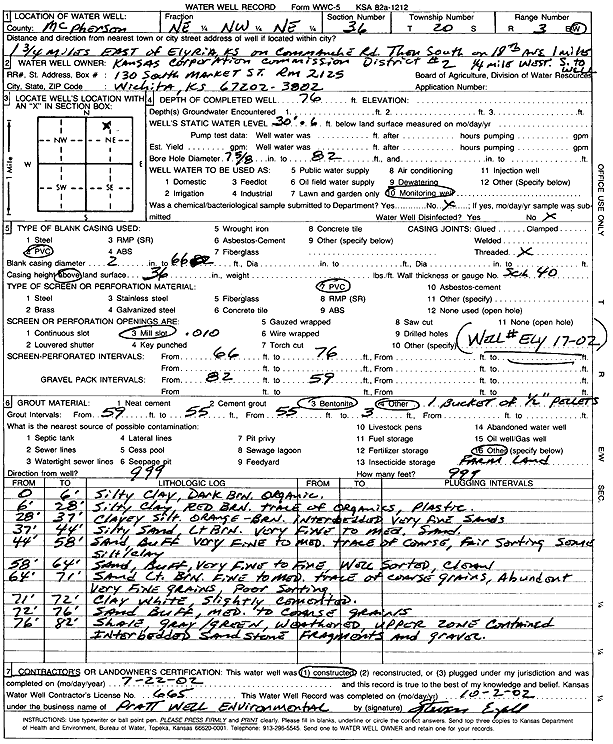 WATER WELL RECORD Form WWC-5 KSA 82a-1212
1 LOCATION OF WATER WELL: Fraction Section Number Township Number Range Number
County: McPherson NE ¼ NW ¼ NE ¼ 36 T 20 S R 3 E/W
Distance and direction from nearest town or city street address of well if located within city?
1 3/4 miles EAST of Elyria, KS on Comanche Rd. Then South on 18th Ave 1 miles
2 WATER WELL OWNER: Kansas Corporation Commission District #2 1/4 mile West. S. to Well
RR#, St. Address, Box # : 130 South Market St. Rm 2125 Board of Agriculture, Division of Water Resources
City, State, ZIP Code : Wichita, KS 67202-3802 Application Number:
3 LOCATE WELL'S LOCATION WITH AN "X" IN SECTION BOX:
N
NW NE
W E
SW SE
S
1 Mile
4 DEPTH OF COMPLETED WELL 76 ft. ELEVATION:
Depth(s) Groundwater Encountered 1. ft. 2. ft. 3. ft.
WELL'S STATIC WATER LEVEL 30'.6 ft. below land surface measured on mo/day/yr
Pump test data: Well water was ft. after hours pumping gpm
Est. Yield gpm: Well water was ft. after hours pumping gpm
Bore Hole Diameter 7 5/8 in. to 82 ft., and in. to ft.
WELL WATER TO BE USED AS: 5 Public water supply 8 Air conditioning 11 Injection well
1 Domestic 3 Feedlot 6 Oil field water supply 9 Dewatering 12 Other (Specify below)
2 Irrigation 4 Industrial 7 Lawn and garden only 10 Monitoring well
Was a chemical/bacteriological sample submitted to Department? Yes No X ; If yes, mo/day/yr sample was sub-
mitted Water Well Disinfected? Yes No X
5 TYPE OF BLANK CASING USED: 5 Wrought iron 8 Concrete tile CASING JOINTS: Glued Clamped
1 Steel 3 RMP (SR) 6 Asbestos-Cement 9 Other (specify below) Welded
2 PVC 4 ABS 7 Fiberglass Threaded X
Blank casing diameter 2 in. to 66 ft., Dia in. to ft., Dia in. to ft.
Casing height above land surface 36 in., weight lbs./ft. Wall thickness or gauge No. Sch. 40
TYPE OF SCREEN OR PERFORATION MATERIAL: 7 PVC 10 Asbestos-cement
1 Steel 3 Stainless steel 5 Fiberglass 8 RMP (SR) 11 Other (specify)
2 Brass 4 Galvanized steel 6 Concrete tile 9 ABS 12 None used (open hole)
SCREEN OR PERFORATION OPENINGS ARE: 5 Gauzed wrapped 8 Saw cut 11 None (open hole)
1 Continuous slot 3 Mill slot .010 6 Wire wrapped 9 Drilled holes
2 Louvered shutter 4 Key punched 7 Torch cut 10 Other (specify)
Well # ELY 17-02
SCREEN-PERFORATED INTERVALS: From 66 ft. to 76 ft., From ft. to ft.
From ft. to ft., From ft. to ft.
GRAVEL PACK INTERVALS: From 82 ft. to 59 ft., From ft. to ft.
From ft. to ft., From ft. to ft.
6 GROUT MATERIAL: 1 Neat cement 2 Cement grout 3 Bentonite 4 Other 1 Bucket of 1/2" pellets
Grout Intervals: From 59 ft. to 55 ft., From 55 ft. to 3 ft., From ft. to ft.
What is the nearest source of possible contamination: 10 Livestock pens 14 Abandoned water well
1 Septic tank 4 Lateral lines 7 Pit privy 11 Fuel storage 15 Oil well/Gas well
2 Sewer lines 5 Cess pool 8 Sewage lagoon 12 Fertilizer storage 16 Other (specify below)
3 Watertight sewer lines 6 Seepage pit 9 Feedyard 13 Insecticide storage Farm Land
Direction from well? 999 How many feet? 999
FROM TO LITHOLOGIC LOG FROM TO PLUGGING INTERVALS
0 6' Silty Clay, Dark Brn. Organic.
6' 28' Silty Clay, Red Brn. trace of organics, Plastic.
28' 37' Clayey Silt. orange-Brn. Interbedded very fine sands
37' 44' Silty Sand, Lt Brn. very fine to med. sand.
44' 58' Sand, Buff very fine to med. trace of coarse, Fair Sorting some silt/clay
58' 64' Sand, Buff, very fine to fine, well sorted, Clean
64' 71' Sand Lt. Brn. fine to med. trace of coarse grains, Abundent very fine grains, Poor sorting
71' 72' Clay White, slightly cemented.
72' 76' Sand Buff, med. to coarse grains
76' 82' Shale, gray/green, weathered, upper zone contained Interbedded sand stone fragments and gravel.
7 CONTRACTOR'S OR LANDOWNER'S CERTIFICATION: This water well was (1) constructed, (2) reconstructed, or (3) plugged under my jurisdiction and was
completed on (mo/day/year) 7-22-02 and this record is true to the best of my knowledge and belief. Kansas
Water Well Contractor's License No. 665 This Water Well Record was completed on (mo/day/yr) 10-2-02
under the business name of Pratt Well Environmental by (signature)
INSTRUCTIONS: Use typewriter or ball point pen. PLEASE PRESS FIRMLY and PRINT clearly. Please fill in blanks, underline or circle the correct answers. Send top three copies to Kansas Department
of Health and Environment, Bureau of Water, Topeka, Kansas 66620-0001. Telephone: 913-296-5545. Send one to WATER WELL OWNER and retain one for your records.
OFFICE USE ONLY
T
R
E/W
SEC.
¼
¼
¼